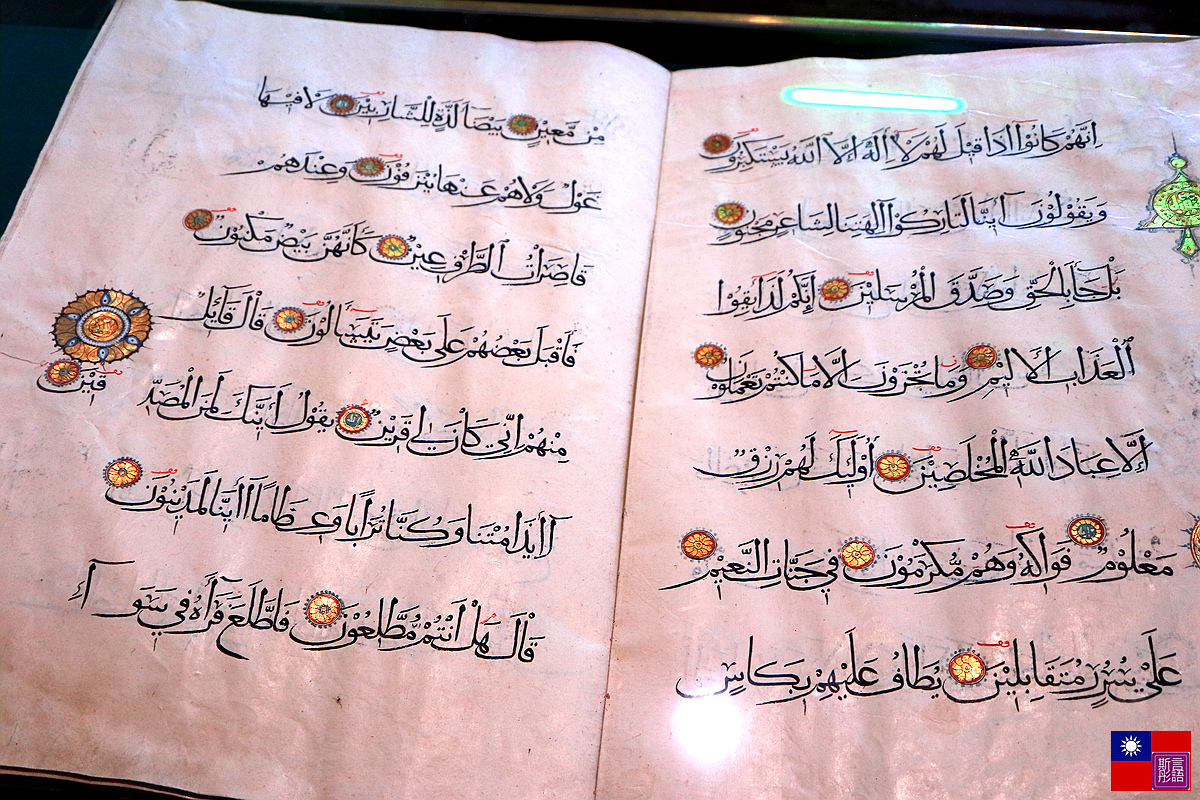 اِنَّهُمْ كَانُوْآ اِذَا قِيْلَ لَهُمْ لَآ اِلٰهَ اِلَّا اللّٰهُ يَسْتَكْبِرُوْنَ
وَيَقُوْلُوْنَ اَئِنَّا لَتَارِكُوْآ اٰلِهَتِنَا لِشَاعِرٍ مَجْنُوْنٍ
بَلْ جَآ بِالْحَقِّ وَصَدَّقَ الْمُرْسَلِيْنَ اِنَّكُمْ لَذَآئِقُوْا
الْعَذَابِ الْاَلِيْمِ وَمَا تُجْزَوْنَ اِلَّا مَا كُنْتُمْ تَعْمَلُوْنَ
اِلَّا عِبَادَ اللّٰهِ الْمُخْلَصِيْنَ اُولٰٓئِكَ لَهُمْ رِزْقٌ
مَعْلُوْمٌ فَوَاكِهُ وَهُمْ مُّكْرَمُوْنَ فِيْ جَنَّاتِ النَّعِيْمِ
عَلٰى سُرُرٍ مُتَقَابِلِيْنَ يُطَافُ عَلَيْهِمْ بِكَاسٍ
مِنْ مَّعِيْنٍ بَيْضَآ لَذَّةٍ لِلشَّارِبِيْنَ لَا فِيْهَا
غَوْلٌ وَلَا هُمْ عَنْهَا يُنْزَفُوْنَ وَعِنْدَهُمْ
قَاصِرَاتُ الطَّرْفِ عِيْنٌ كَاَنَّهُنَّ بَيْضٌ مَكْنُوْنٌ
فَاَقْبَلَ بَعْضُهُمْ عَلٰى بَعْضٍ يَتَسَآلُوْنَ قَالَ قَآئِلٌ
مِنْهُمْ اِنِّيْ كَانَ لِيْ قَرِيْنٌ يَقُوْلُ اَئِنَّكَ لَمِنَ الْمُصَدِّ
قِيْنَ
اَاِذَا مِتْنَا وَكُنَّا تُرَابًا وَعِظَامًا اَئِنَّا لَمَدِيْنُوْنَ
قَالَ هَلْ اَنْتُمْ مُّطَّلِعُوْنَ فَاطَّلَعَ فَرَاٰهُ فِيْ سَوَآ
言語
斯彤